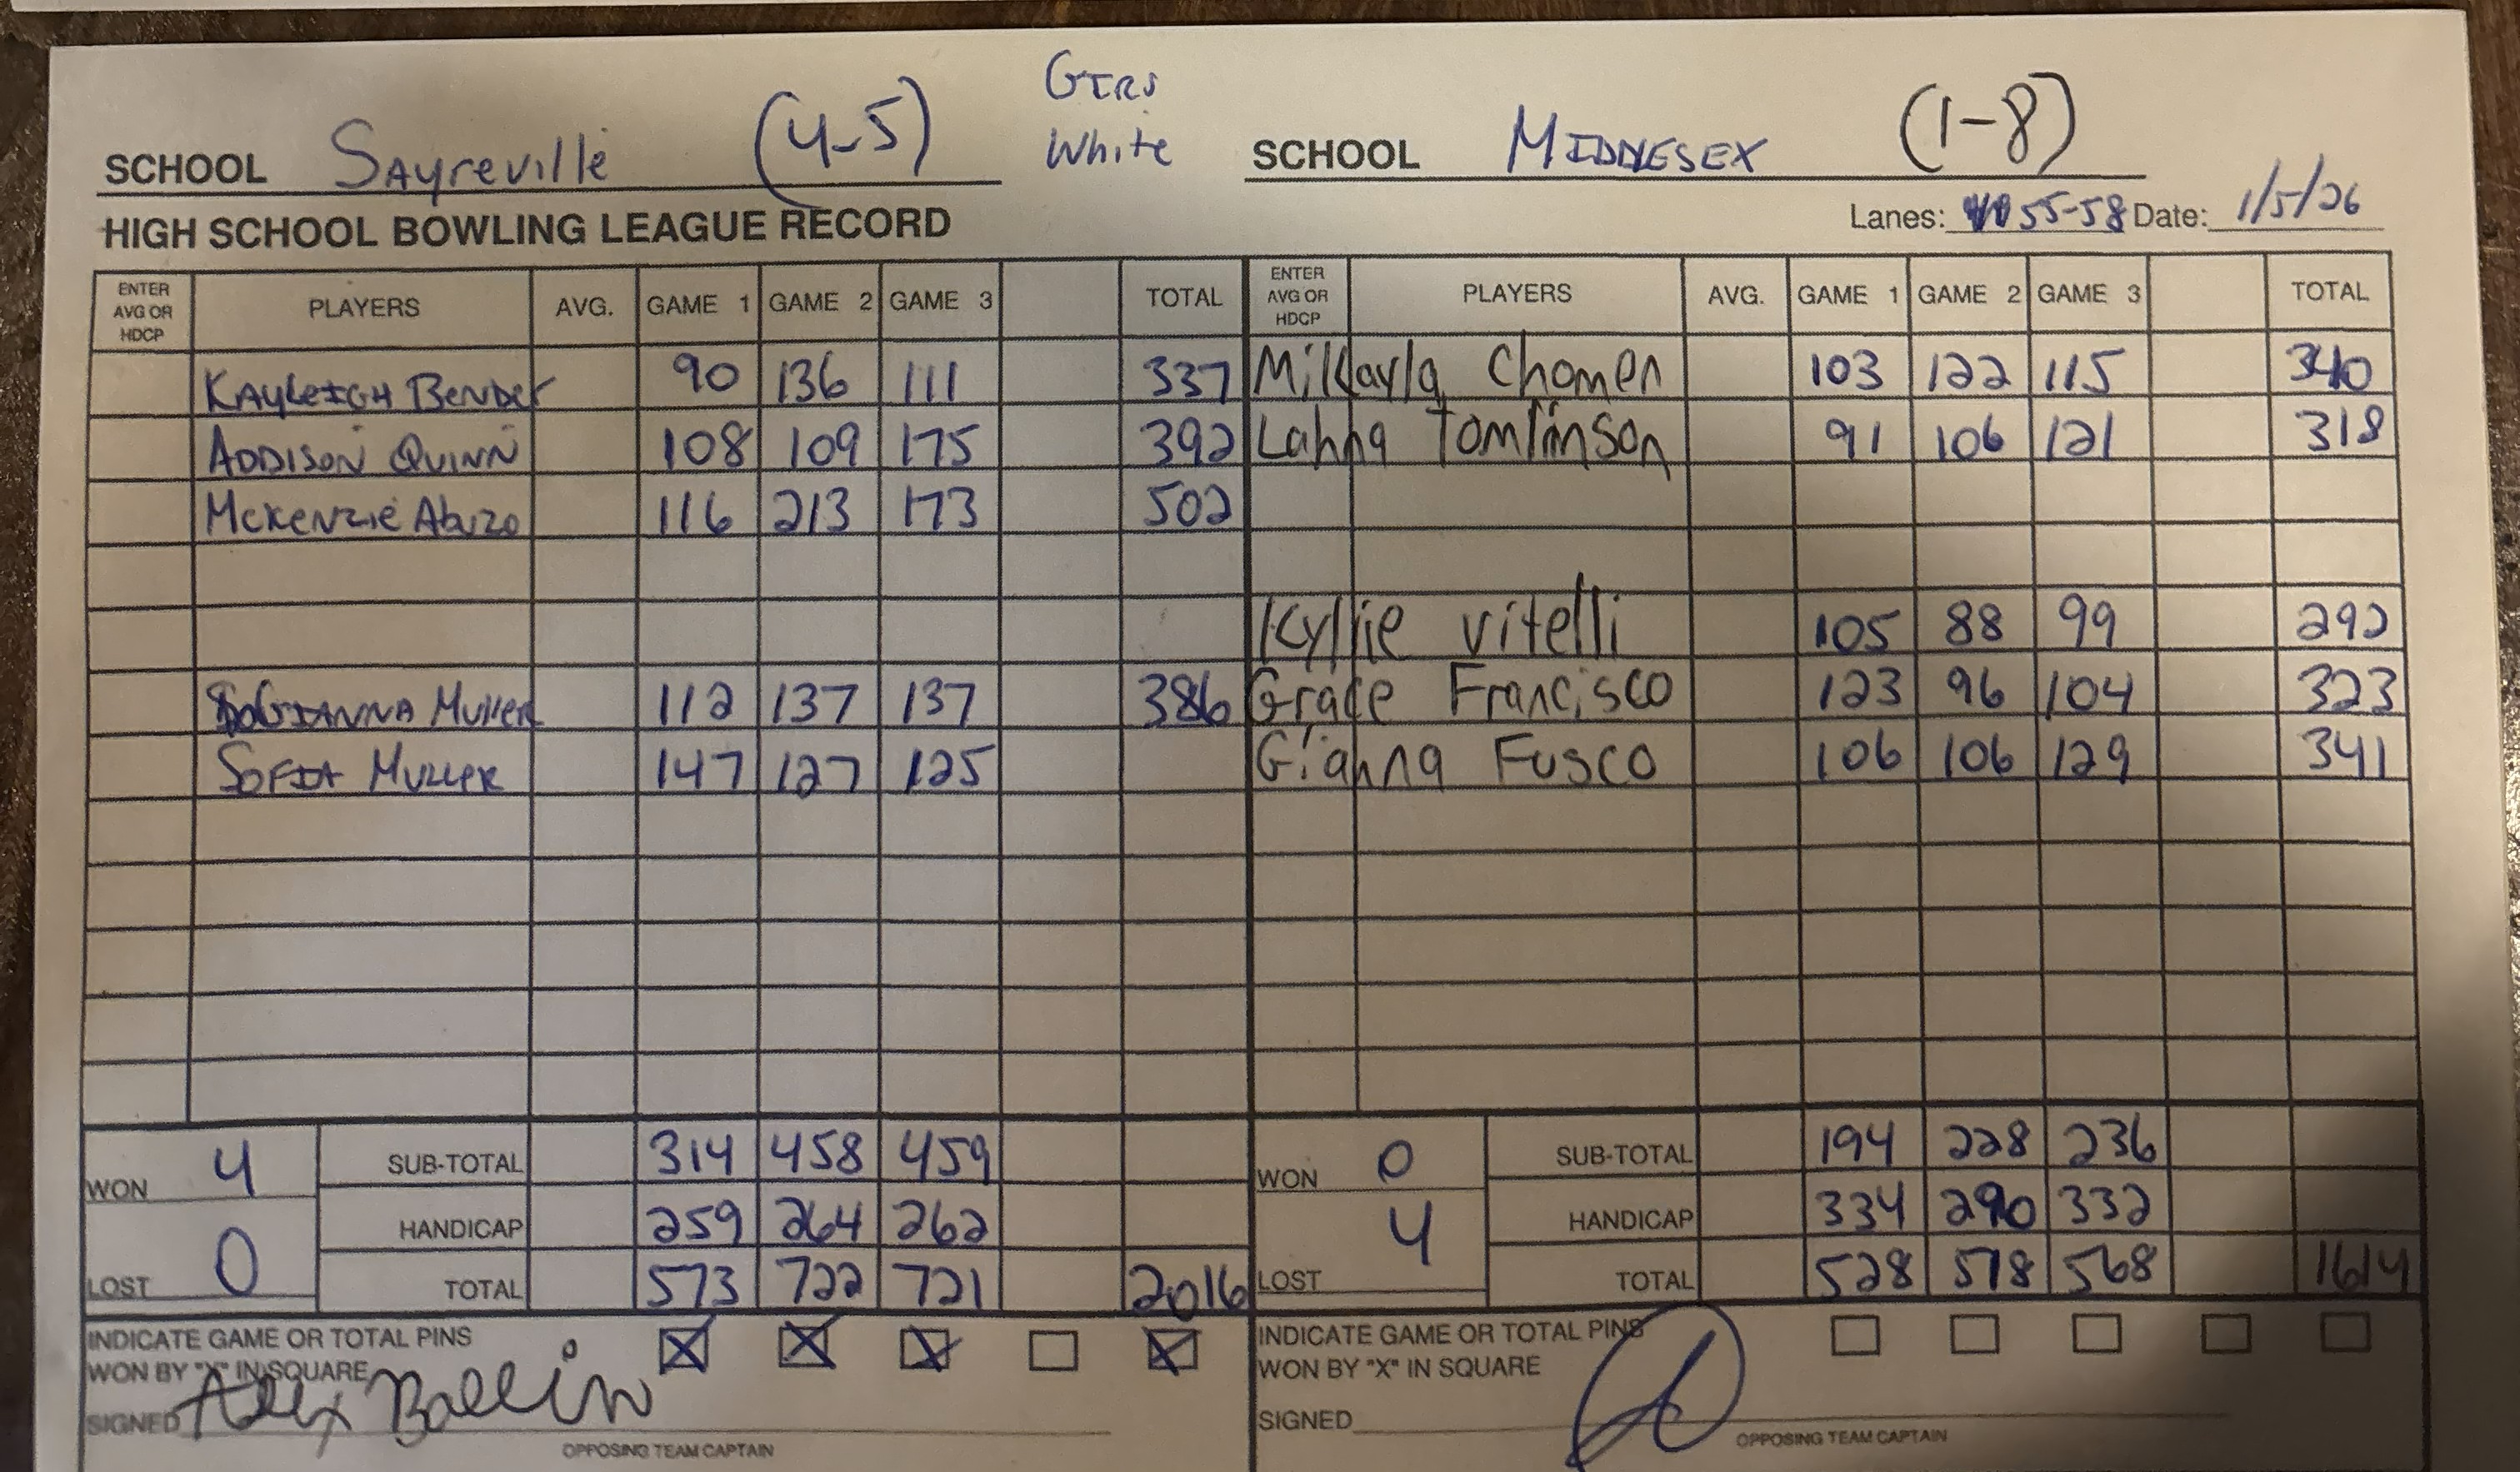 GIRS
White
SCHOOL Sayreville (4-5) SCHOOL MIDDLESEX (1-8)
HIGH SCHOOL BOWLING LEAGUE RECORD Lanes: 55-58 Date: 1/5/26
ENTER AVG OR HDCP PLAYERS AVG. GAME 1 GAME 2 GAME 3 TOTAL ENTER AVG OR HDCP PLAYERS AVG. GAME 1 GAME 2 GAME 3 TOTAL
KAYLEIGH BENDER 90 136 111 337 Mikayla Chomen 103 122 115 340
ADDISON QUINN 108 109 175 392 Lahna Tomlinson 91 106 121 318
McKENZIE Abuzo 116 213 173 502
Kyllie Vitelli 105 88 99 292
GIANNA MULLER 112 137 137 386 Grace Francisco 123 96 104 323
SOFIA MULLER 147 127 125 Gianna Fusco 106 106 129 341
WON 4 SUB-TOTAL 314 458 459 WON 0 SUB-TOTAL 194 228 236
HANDICAP 259 264 262 HANDICAP 334 290 332
LOST 0 TOTAL 573 722 721 2016 LOST 4 TOTAL 528 518 568 1614
INDICATE GAME OR TOTAL PINS WON BY "X" IN SQUARE X X X X INDICATE GAME OR TOTAL PINS WON BY "X" IN SQUARE
SIGNED Alex SIGNED
OPPOSING TEAM CAPTAIN OPPOSING TEAM CAPTAIN